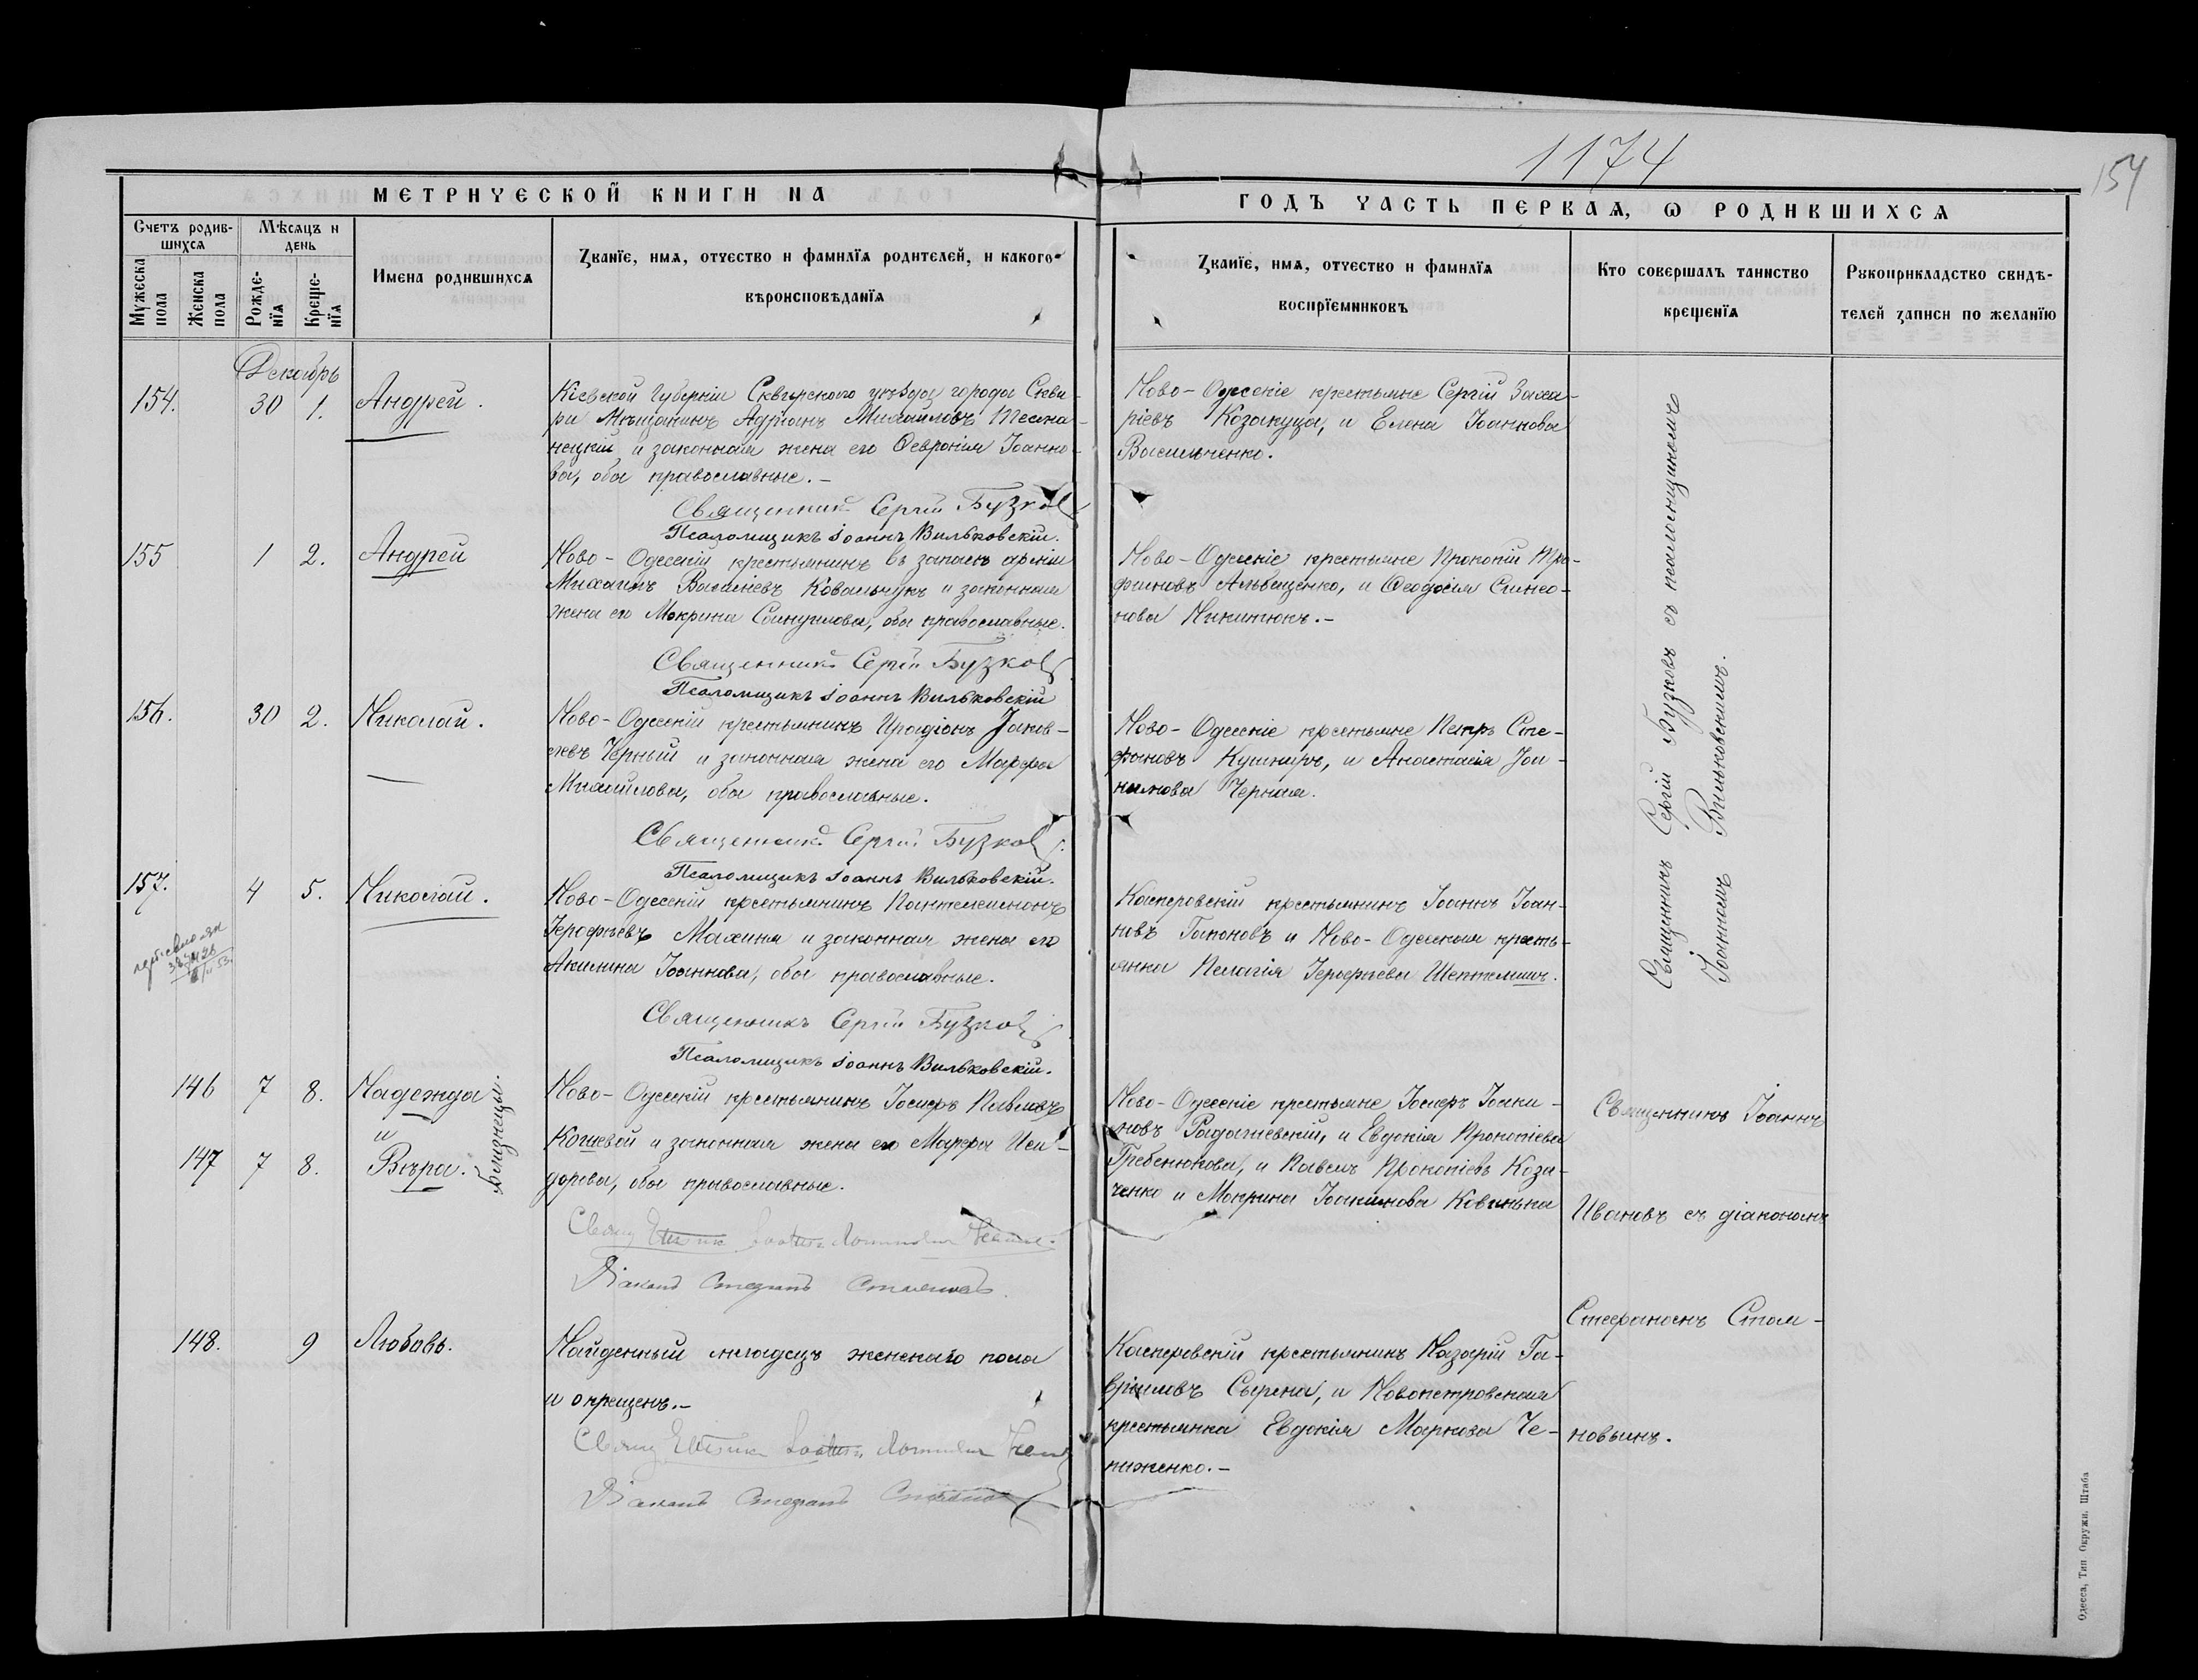 1174
154
МЕТРИЧЕСКОЙ КНИГИ НА
ГОДЪ ЧАСТЬ ПЕРВАЯ, Ѡ РОДИВШИХСЯ
Счетъ родив-
шихся
Мѣсяцъ и
день
Мужеска
пола
Женска
пола
Рожде-
нїя
Креще-
нїя
Имена родившихся
Званїе, имя, отчество и фамилїя родителей, и какого
вѣроисповѣданїя
Званїе, имя, отчество и фамилїя
воспрїемниковъ
Кто совершалъ таинство
крещенїя
Рукоприкладство свидѣ-
телей записи по желанїю
Декабрь
154. 30 1. Андрей.
Кіевской Губерніи Сквирскаго уѣзда города Скви-
ры Мѣщанинъ Адріанъ Михаиловъ
нецкій и законная жена его Февронія Іоанно-
ва, оба православные.-
Священникъ Сергій Бузковъ
Псаломщикъ Іоаннъ Вильковскій.
Ново-Одесскіе крестьяне Сергій Заха-
ріевъ Козакуца, и Елена Іоаннова
Васильченко.
155 1 2. Андрей
Ново-Одесскій крестьянинъ въ запасѣ арміи
Михаилъ Василіевъ Ковальчукъ и законная
жена его Мокрина оба православные.
Священникъ Сергій Бузковъ
Псаломщикъ Іоаннъ Вильковскій
Ново-Одесскіе крестьяне Прокопій Тро-
фимовъ Альбещенко, и Феодосія Симео-
нова Никитюкъ.-
156. 30 2. Николай.
Ново-Одесскій крестьянинъ Иродіонъ Іаков-
левъ Черный и законная жена его Марфа
Михайлова, оба православные.
Священникъ Сергій Бузковъ
Псаломщикъ Іоаннъ Вильковскій.
Ново-Одесскіе крестьяне Петръ Сте-
фановъ Кушниръ, и Анастасія Іоа-
кимова Черная.
157. 4 5. Николай.
Ново-Одесскій крестьянинъ Пантелеимонъ
Іерофѣевъ Махиня и законная жена его
Акилина Іоаннова, оба православные.
Священникъ Сергій Бузковъ
Псаломщикъ Іоаннъ Вильковскій.
Касперовскій крестьянинъ Іоаннъ Іоан-
новъ Гапоновъ и Ново-Одесская кресть-
янка Пелагія Іерофѣева
Священникъ Сергій Бузковъ съ псаломщикомъ
Іоанномъ Вильковскимъ.
146 7 8. Надежда
и
147 7 8. Вѣра.
Близнецы.
Ново-Одесскій крестьянинъ Іосифъ Павловъ
Кошевой и законная жена его Марфа Иси-
дорова, оба православные.
Діаконъ Стефанъ
Ново-Одесскіе крестьяне Іосифъ Іоаки-
мовъ Радачевскій, и Евдокія Прокопіева
Гребенюкова, и Павелъ Прокопіевъ Коза-
ченко и Мокрина Іоакимова Ковинька
Священникъ Іоаннъ
Ивановъ съ діакономъ
Стефаномъ Стоя-
новымъ.
148. 9 Любовь.
Найденный младецъ женскаго пола
и окрещенъ.-
Діаконъ Стефанъ
Касперовскій крестьянинъ Назарій Га-
вріиловъ Сырена, и Новопетровская
крестьянка Евдокія Маркова Че-
пиженко.-
Одесса, Тип Окружн. Штаба